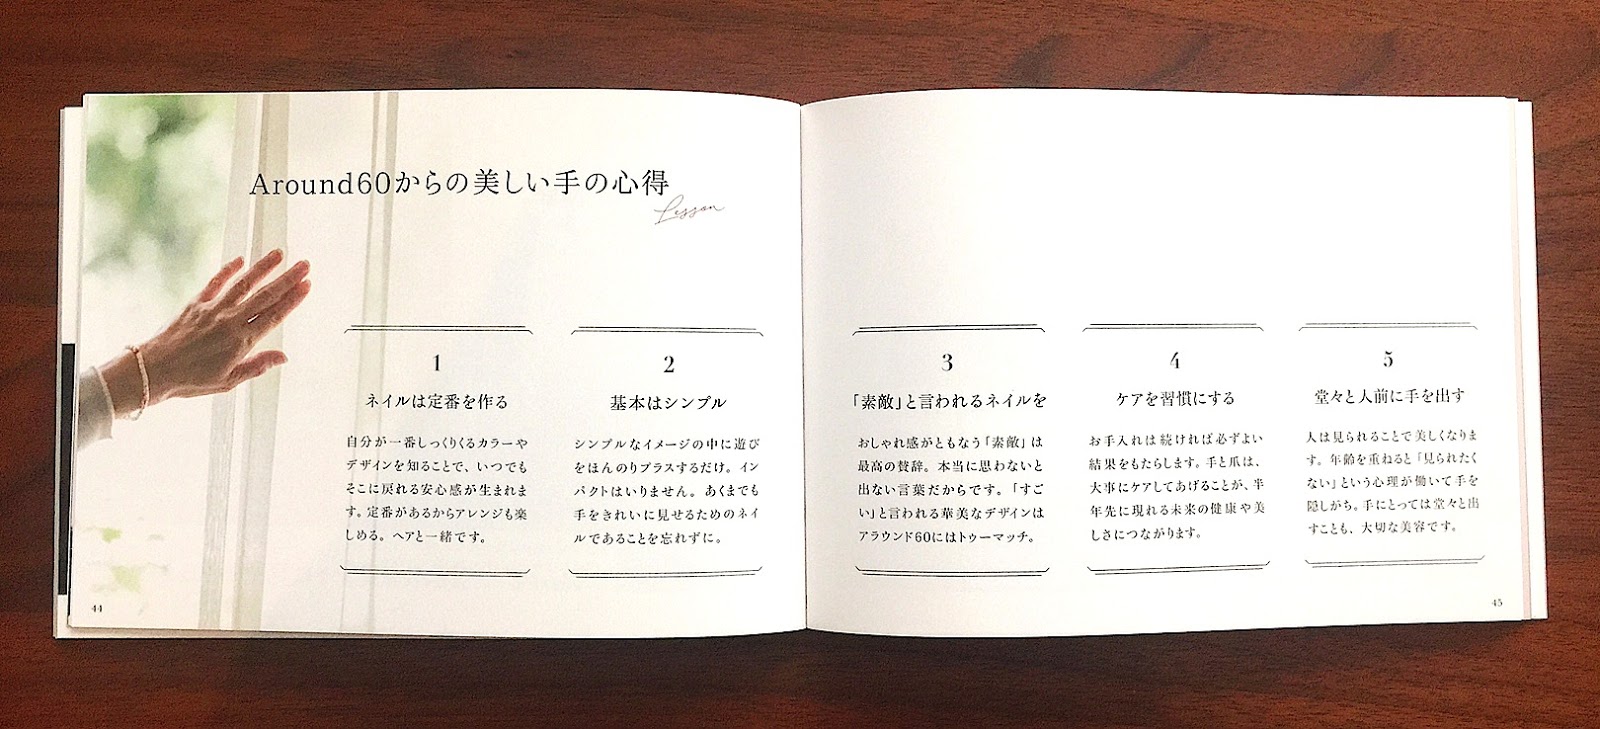 Around60からの美しい手の心得
Lesson
1
ネイルは定番を作る
自分が一番しっくりくるカラーや
デザインを知ることで、いつでも
そこに戻れる安心感が生まれま
す。定番があるからアレンジも楽
しめる。ヘアと一緒です。
2
基本はシンプル
シンプルなイメージの中に遊び
をほんのりプラスするだけ。イン
パクトはいりません。あくまでも
手をきれいに見せるためのネイ
ルであることを忘れずに。
44
3
「素敵」と言われるネイルを
おしゃれ感がともなう「素敵」は
最高の賛辞。本当に思わないと
出ない言葉だからです。「すご
い」と言われる華美なデザインは
アラウンド60にはトゥーマッチ。
4
ケアを習慣にする
お手入れは続ければ必ずよい
結果をもたらします。手と爪は、
大事にケアしてあげることが、半
年先に現れる未来の健康や美
しさにつながります。
5
堂々と人前に手を出す
人は見られることで美しくなりま
す。年齢を重ねると「見られたく
ない」という心理が働いて手を
隠しがち。手にとっては堂々と出
すことも、大切な美容です。
45